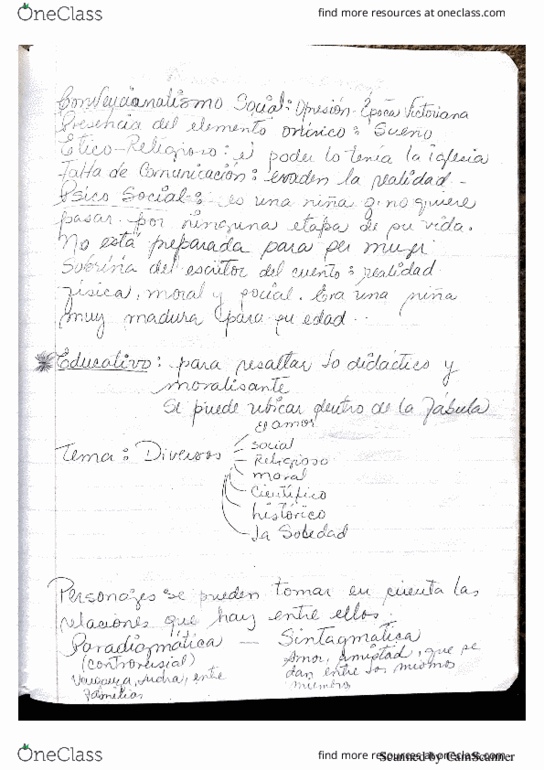 OneClass
find more resources at oneclass.com
Convencionalismo Social: Opresión-Época Victoriana
Presencia del elemento onírico: Sueño
Ético-Religioso: el poder lo tenía la iglesia
Falta de Comunicación: evaden la realidad-
Psico Social: es una niña q. no quiere
pasar por ninguna etapa de su vida.
No está preparada para ser mujer
Sobrina del escritor del cuento: realidad
física, moral y social. Era una niña
muy madura para su edad..
Educativo: para resaltar lo didáctico y
moralisante
Se puede ubicar dentro de la Fábula
Tema: Diversos
El amor
social
Religioso
moral
Científico
histórico
la Soledad
Personajes se pueden tomar en cuenta las
relaciones que hay entre ellos.
Paradigmática — Sintagmática
(controversial)
Amor, amistad, que se
entre
dan entre los mismos
familias
miembros
OneClass
find more resources at oneclass.com
Scanned by CamScanner